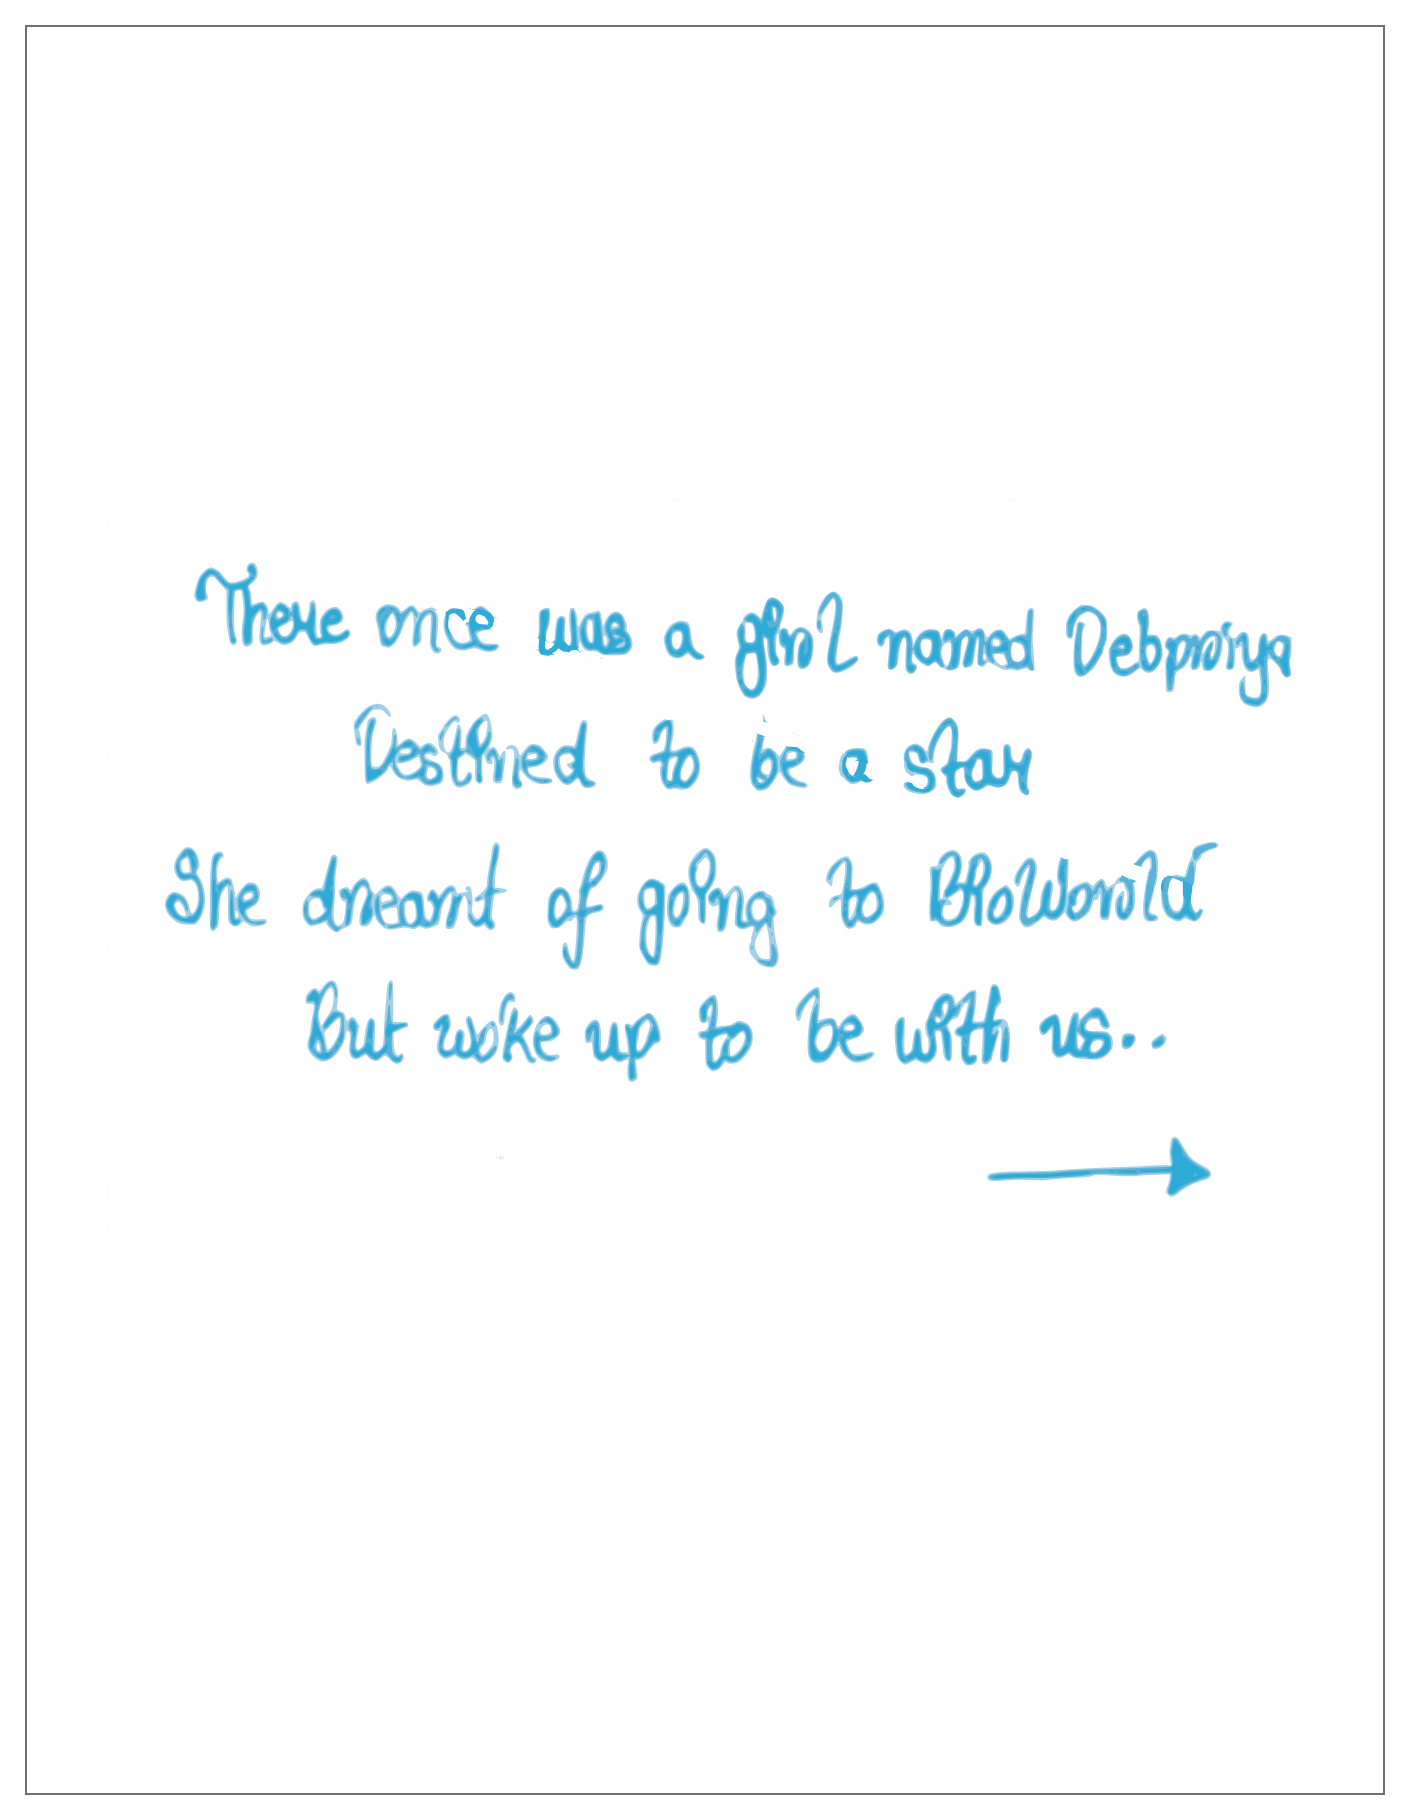 There once was a girl named Debpriya
Destined to be a star
She dreamt of going to BioWorld
But woke up to be with us..